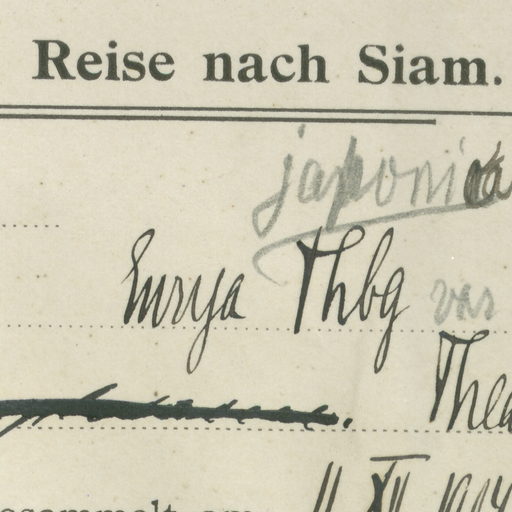 Reise nach Siam.
japonica
Eurya Thbg var
Thea
gesammelt am 11 XII 1914